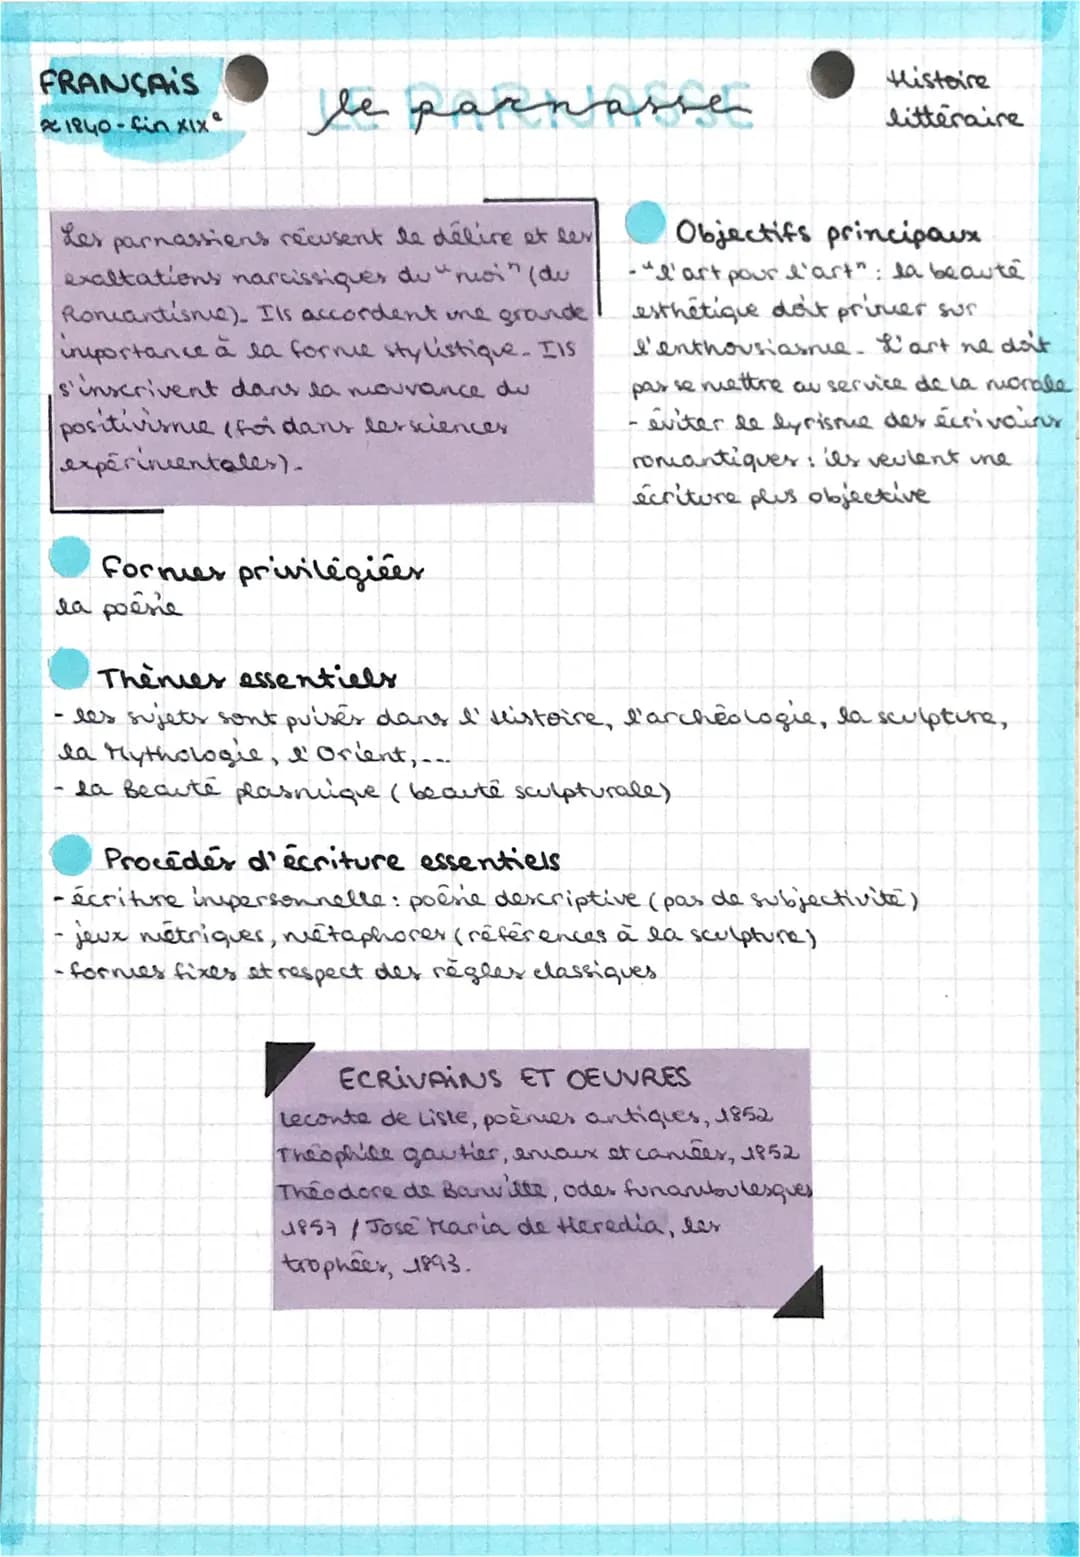 FRANÇAIS
≈ 1840 - fin XIXe
LE PARNASSE
le parnasse
Histoire
littéraire
Les parnassiens récusent le délire et les
exaltations narcissiques du "moi" (du
Romantisme). Ils accordent une grande
importance à la forme stylistique. Ils
s'inscrivent dans la mouvance du
positivisme (foi dans les sciences
expérimentales).
Objectifs principaux
- "l'art pour l'art" : la beauté
esthétique doit primer sur
l'enthousiasme. L'art ne doit
pas se mettre au service de la morale
- éviter le lyrisme des écrivains
romantiques : ils veulent une
écriture plus objective
Formes privilégiées
la poésie
Thèmes essentiels
- les sujets sont puisés dans l'Histoire, l'archéologie, la sculpture,
la Mythologie, l'Orient,...
- la Beauté plasmique (beauté sculpturale)
Procédés d'écriture essentiels
- écriture impersonnelle : poésie descriptive (pas de subjectivité)
- jeux métriques, métaphores (références à la sculpture)
- formes fixes et respect des règles classiques
ECRIVAINS ET OEUVRES
Leconte de Lisle, poèmes antiques, 1852
Théophile gautier, emaux et camées, 1852
Théodore de Banville, odes funambulesques
1857 / José Maria de Heredia, les
trophées, 1893.